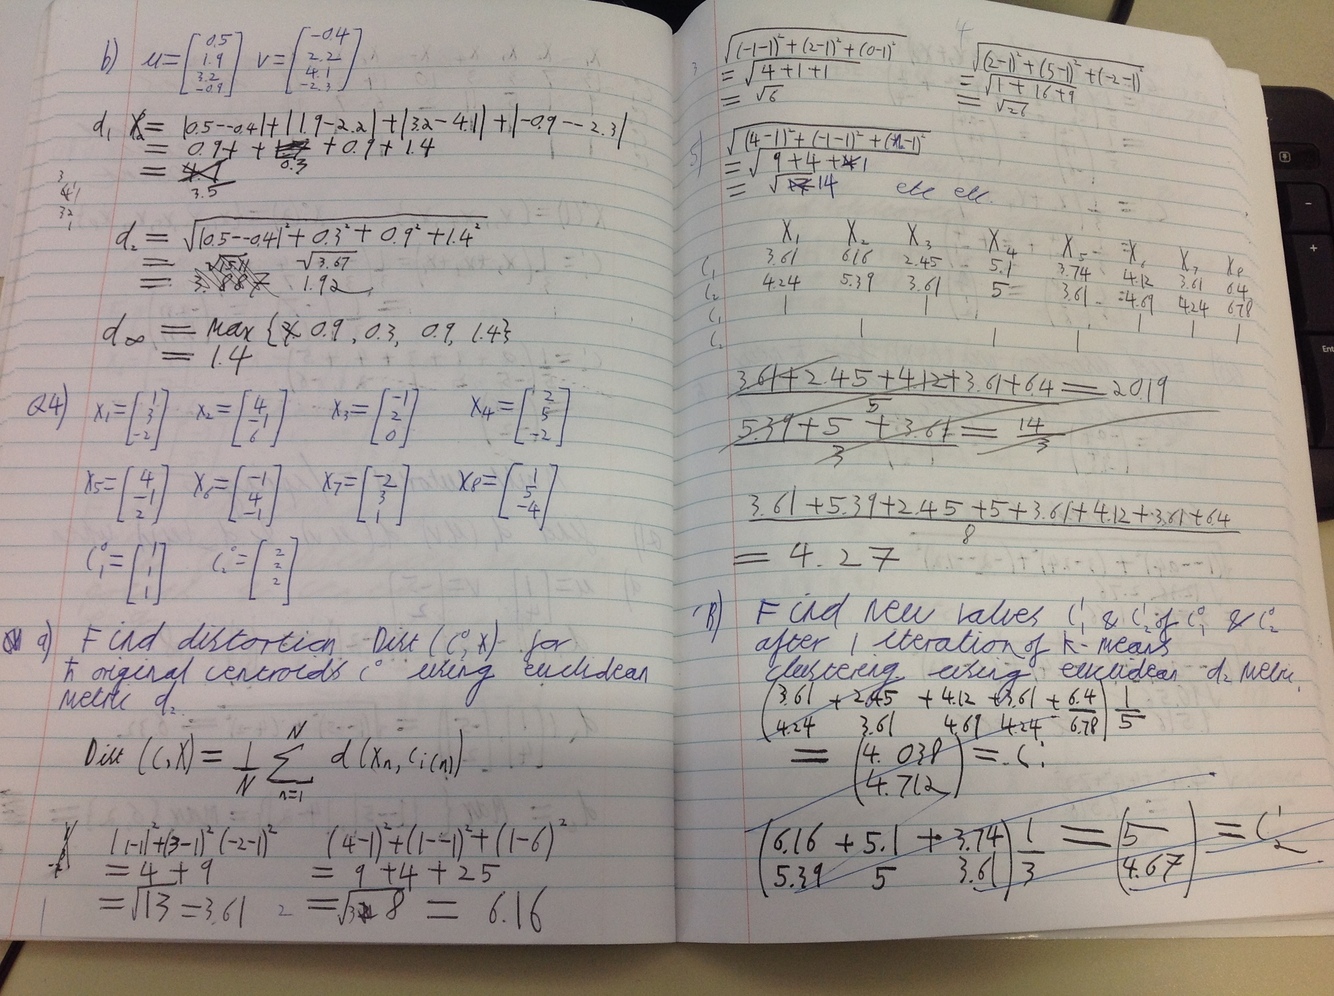 b) u = [0.5 1.9 3.2 -0.9] v = [-0.4 2.2 4.1 -2.3]
d₁ = |0.5--0.4| + |1.9-2.2| + |3.2-4.1| + |-0.9--2.3|
= 0.9 + 0.3 + 0.9 + 1.4
= 3.5
d₂ = √(|0.5--0.4|² + 0.3² + 0.9² + 1.4²
= √3.67
= 1.92
d∞ = Max {0.9, 0.3, 0.9, 1.4}
= 1.4
Q4) X₁ = [1 3 -2] X₂ = [4 -1 6] X₃ = [-1 2 0] X₄ = [2 5 -2]
X₅ = [4 -1 2] X₆ = [-1 4 -1] X₇ = [-2 3 1] X₈ = [1 5 -4]
C₁⁰ = [1 1 1] C₂⁰ = [2 2 2]
a) Find distortion Dist (C⁰, X) for
k original centroids C⁰ using euclidean
metric d₂
Dist (C, X) = 1/N Σ n=1 N d(Xn, Ci(n))
(1-1)² + (3-1)² (-2-1)²
= 4 + 9
1 = √13 = 3.61
(4-1)² + (1--1)² + (1-6)²
= 9 + 4 + 25
2 = √38 = 6.16
3 √(-1-1)² + (2-1)² + (0-1)²
= √4+1+1
= √6
4 √(2-1)² + (5-1)² + (-2-1)²
= √1+16+9
= √26
5) √(4-1)² + (-1-1)² + (2-1)²
= √9+4+1
= √14 etc etc.
X₁ X₂ X₃ X₄ X₅ X₆ X₇ X₈
C₁ 3.61 6.16 2.45 5.1 3.74 4.12 3.61 6.4
C₂ 4.24 5.39 3.61 5 3.61 4.69 4.24 6.78
C₁ 1 1 1 1 1
C₂ 1 1 1
3.61 + 2.45 + 4.12 + 3.61 + 6.4 = 20.19
5
5.39 + 5 + 3.61 = 14/3
3
3.61 + 5.39 + 2.45 + 5 + 3.61 + 4.12 + 3.61 + 6.4
8
= 4.27
B) Find new values C₁¹ & C₂¹ of C₁⁰ & C₂⁰
after 1 iteration of k-means
clustering using euclidean d₂ metric.
(3.61 + 2.45 + 4.12 + 3.61 + 6.4) 1/5
(4.24 3.61 4.69 4.24 6.78)
= (4.038 4.712) = C₁¹
(6.16 + 5.1 + 3.74) 1/3 = (5 4.67) = C₂¹
(5.39 5 3.61)